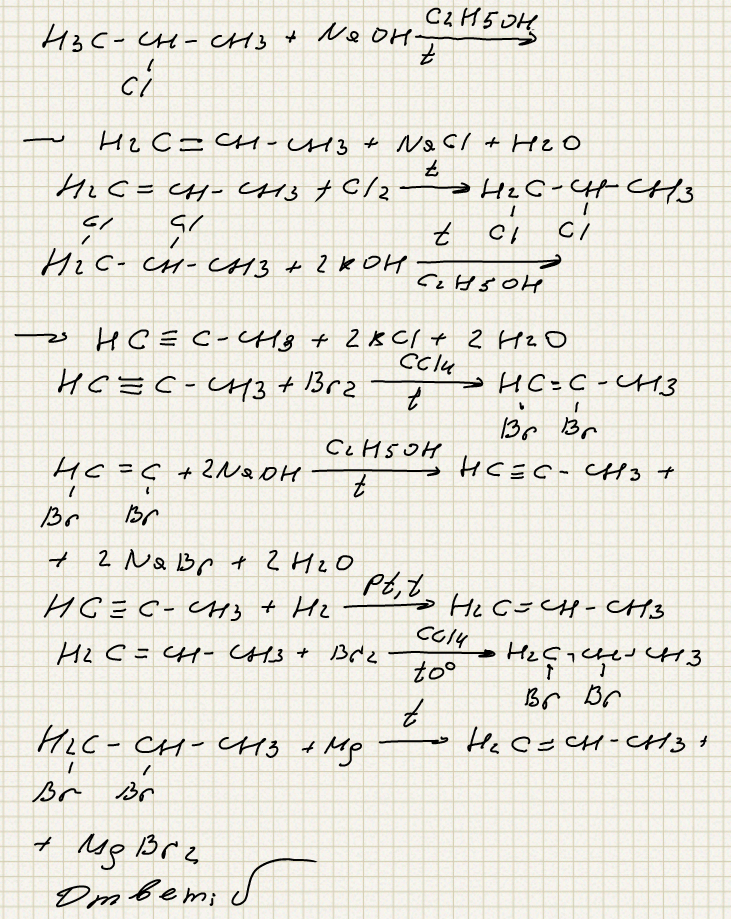 H3C - CH - CH3 + NaOH C2H5OH
t
Cl
→ H2C = CH - CH3 + NaCl + H2O
H2C = CH - CH3 + Cl2 t→ H2C - CH - CH3
Cl Cl
Cl Cl
H2C - CH - CH3 + 2KOH t→ C2H5OH
→ HC ≡ C - CH3 + 2KCl + 2H2O
HC ≡ C - CH3 + Br2 CCl4→ t HC = C - CH3
Br Br
HC = C + 2NaOH C2H5OH→ t HC ≡ C - CH3 +
Br Br
+ 2NaBr + 2H2O
HC ≡ C - CH3 + H2 Pt, t→ H2C = CH - CH3
H2C = CH - CH3 + Br2 CCl4→ t0° H2C - CH - CH3
Br Br
H2C - CH - CH3 + Mg t→ H2C = CH - CH3 +
Br Br
+ MgBr2
Ответ: